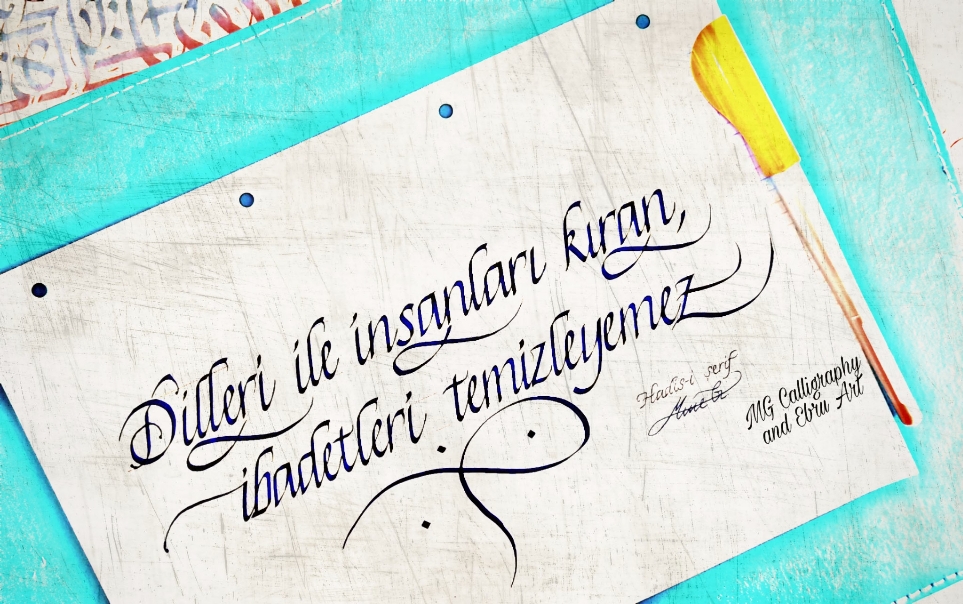 Dilleri ile insanları kıran,
ibadetleri temizleyemez
Hadis-i şerif
MG Calligraphy
and Ebru Art